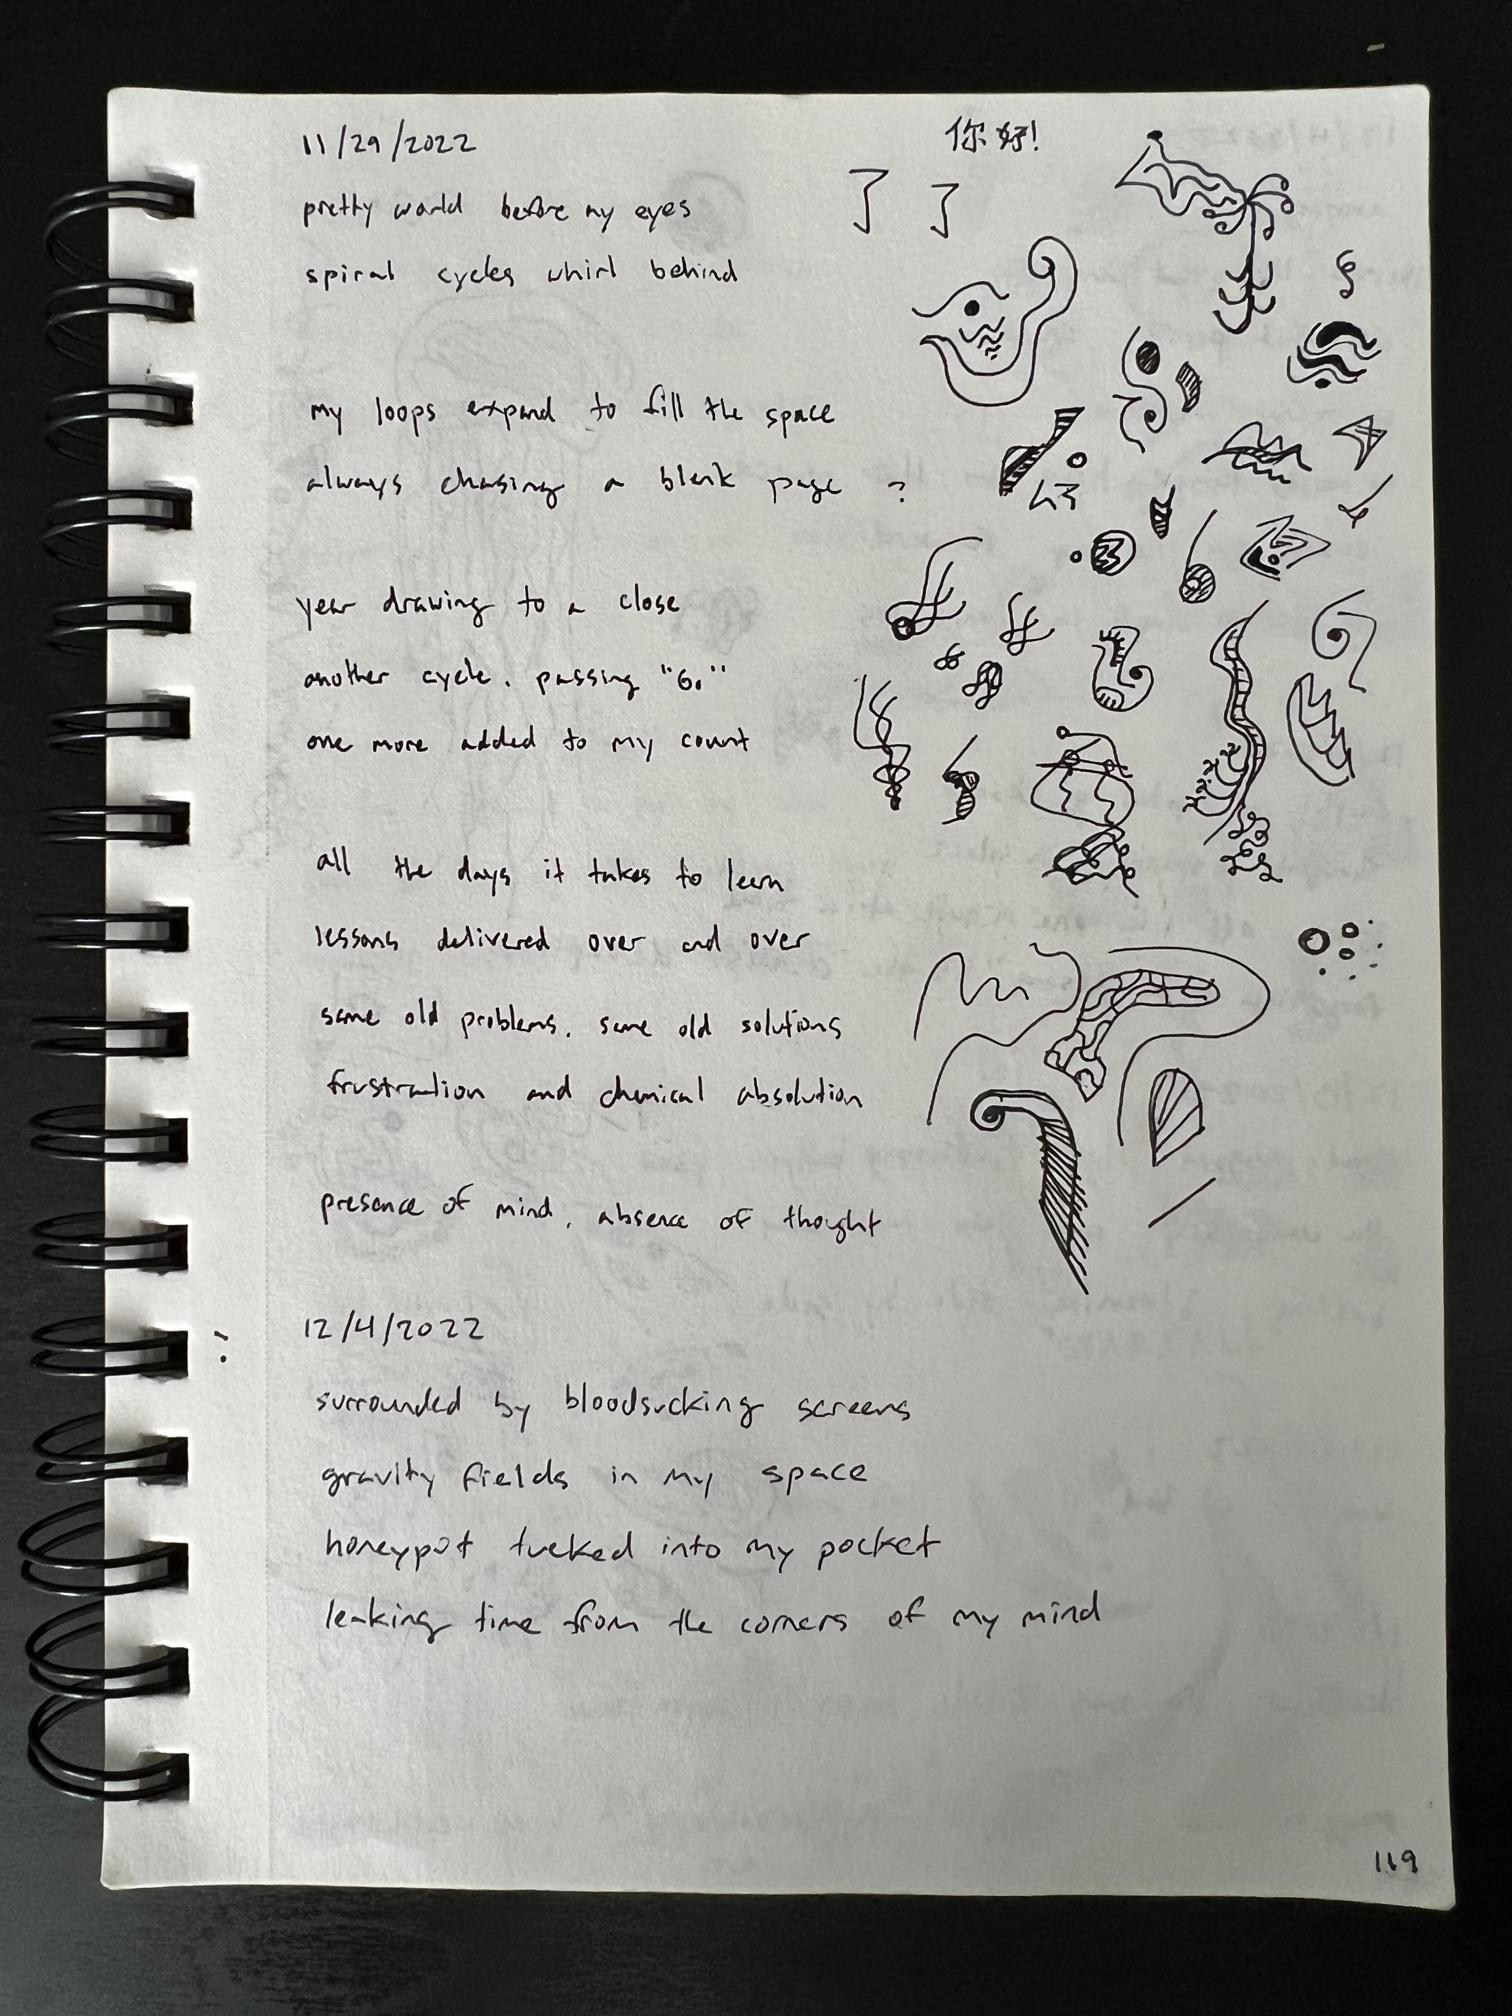 11/29/2022
你好!
pretty world before my eyes
spiral cycles whirl behind
my loops expand to fill the space
always chasing a blank page ?
year drawing to a close
another cycle, passing "Go"
one more added to my count
all the days it takes to learn
lessons delivered over and over
same old problems, same old solutions
frustration and chemical absolution
presence of mind, absence of thought
12/4/2022
surrounded by bloodsucking screens
gravity fields in my space
honeypot tucked into my pocket
leaking time from the corners of my mind
119